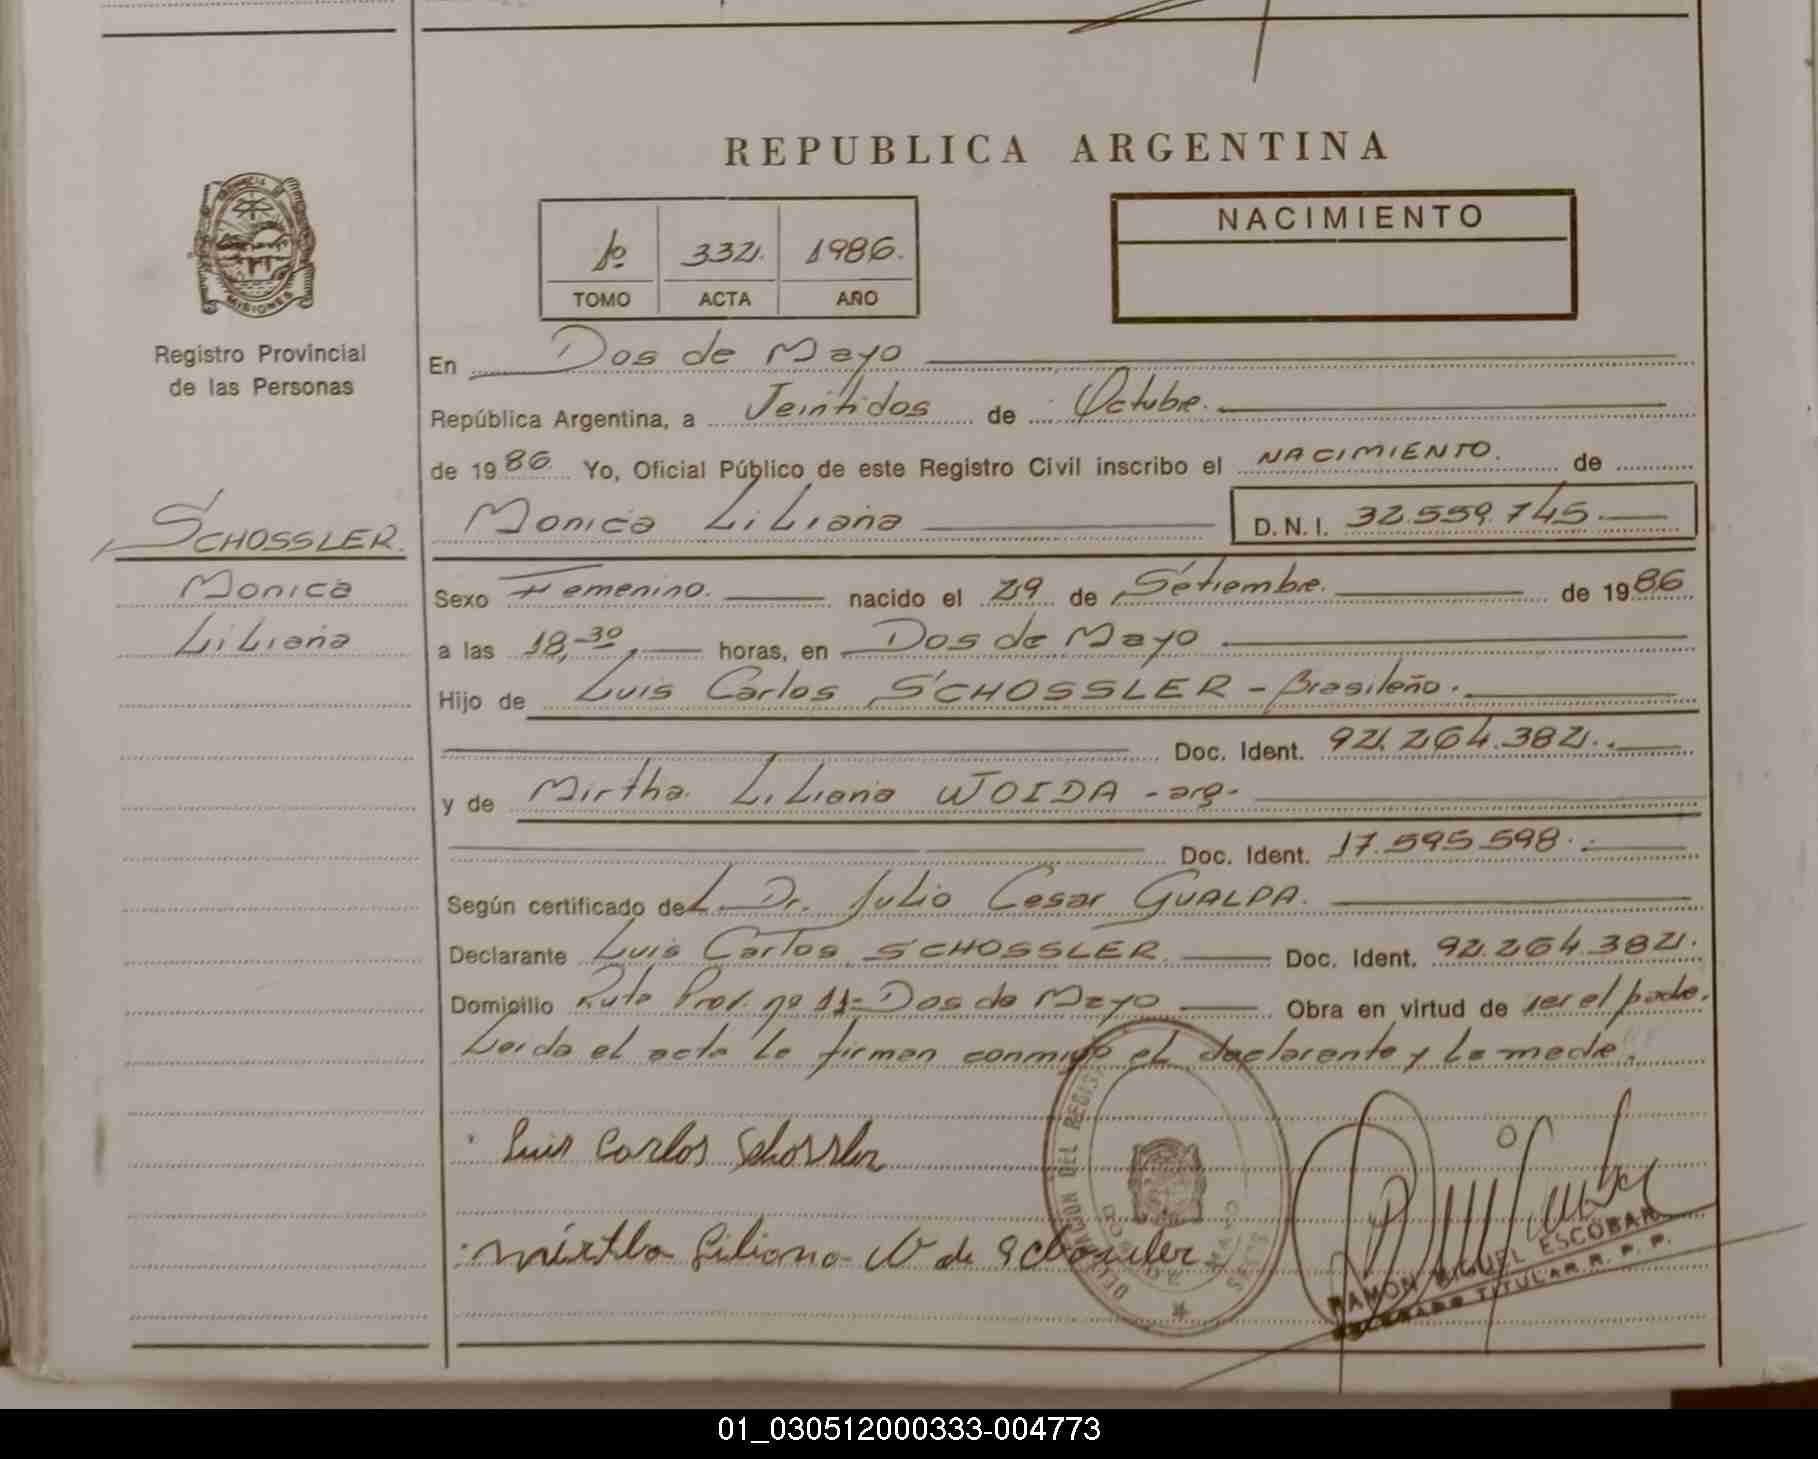 REPUBLICA ARGENTINA
PROVINCIA DE MISIONES
Registro Provincial
de las Personas
1º 331. 1986.
TOMO ACTA AÑO
NACIMIENTO
En Dos de Mayo
República Argentina, a Veintidos de Octubre.
de 1986 Yo, Oficial Público de este Registro Civil inscribo el NACIMIENTO. de
SCHOSSLER.
Monica
Liliana
Monica Liliana D.N.I. 32.559.745
Sexo Femenino. nacido el 29 de Setiembre. de 1986
a las 18,30 horas, en Dos de Mayo
Hijo de Luis Carlos SCHOSSLER - Brasileño.
Doc. Ident. 92.264.381.
y de Mirtha Liliana WOIDA - arg -
Doc. Ident. 17.595.598.
Según certificado del Dr. Julio Cesar GUALPA.
Declarante Luis Carlos SCHOSSLER Doc. Ident. 92.264.381.
Domicilio Ruta Prov. nº 11 - Dos de Mayo Obra en virtud de ser el padre.
Leida el acta la firman conmigo el declarante y la madre.
Luis Carlos Schossler
Mirtha Liliana W de Schossler
RAMON MIGUEL ESCOBAR
DELEGADO TITULAR R. P. P.
01_030512000333-004773